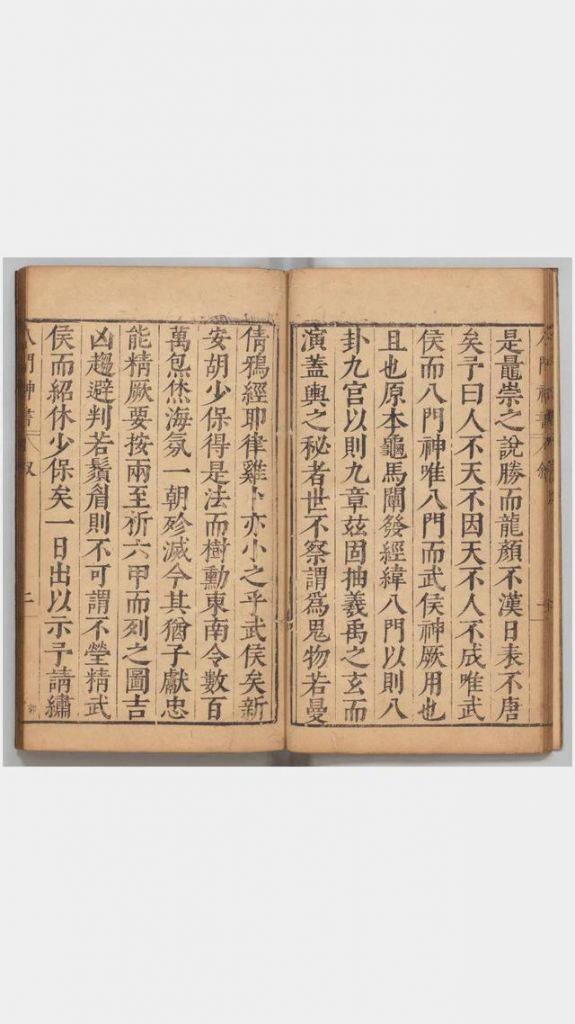 是鼂崇之說勝而龍顏不漢日表不唐
矣予曰人不天不因天不人不成唯武
侯而八門神唯八門而武侯神厥用也
且也原本龜馬闡發經緯八門以則八
卦九官以則九章玆固抽羲禹之玄而
演蓋輿之秘者世不察謂爲鬼物若曼
倩鴉經耶律雞卜亦小之乎武侯矣新
安胡少保得是法而樹勳東南令數百
萬炰烋海氛一朝殄滅今其猶子獻忠
能精厥要按兩至祈六甲而列之圖吉
凶趨避判若鬚眉則不可謂不瑩精武
侯而紹休少保矣一日出以示予請繡
八門神書 叙 二